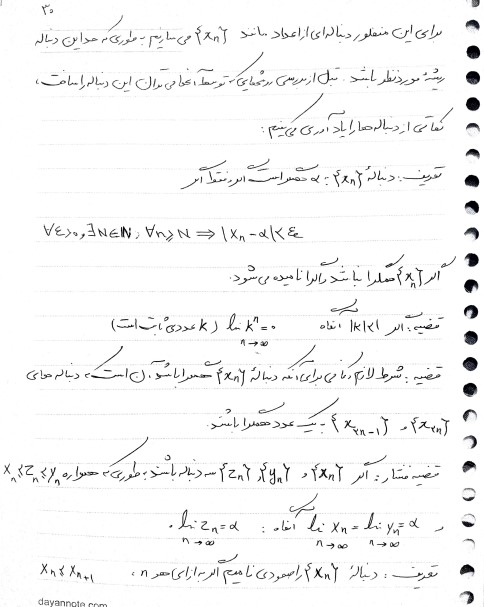 ۳۰
برای این منظور دنباله‌ای از اعداد مانند {xₙ} می سازیم به طوری که حد این دنباله
ریشهٔ مورد نظر باشد. قبل از بررسی روشهایی که توسط آنها می توان این دنباله را ساخت،
نکاتی از دنباله‌ها را یادآوری می کنیم:
تعریف: دنبالهٔ {xₙ} به α همگراست اگر و فقط اگر
∀ε>۰, ∃N∈ℕ; ∀n⩾N ⇒ |xₙ - α|<ε
اگر {xₙ} همگرا نباشد واگرا نامیده می شود.
قضیه: اگر |k|<۱ آنگاه lim kⁿ = ۰ (k عددی ثابت است)
n→∞
قضیه: شرط لازم و کافی برای آنکه دنبالهٔ {xₙ} همگرا باشد، آن است که دنباله های
{x₂ₙ} و {x₂ₙ₋₁} به یک عدد همگرا باشند.
قضیه فشار: اگر {xₙ} و {yₙ} و {zₙ} سه دنباله باشند به طوری که همواره xₙ⩽zₙ⩽yₙ
و lim xₙ = lim yₙ = α آنگاه: lim zₙ = α.
n→∞ n→∞ n→∞
تعریف: دنبالهٔ {xₙ} را صعودی نامیم اگر به ازای هر n، xₙ⩽xₙ₊₁
dayannote.com